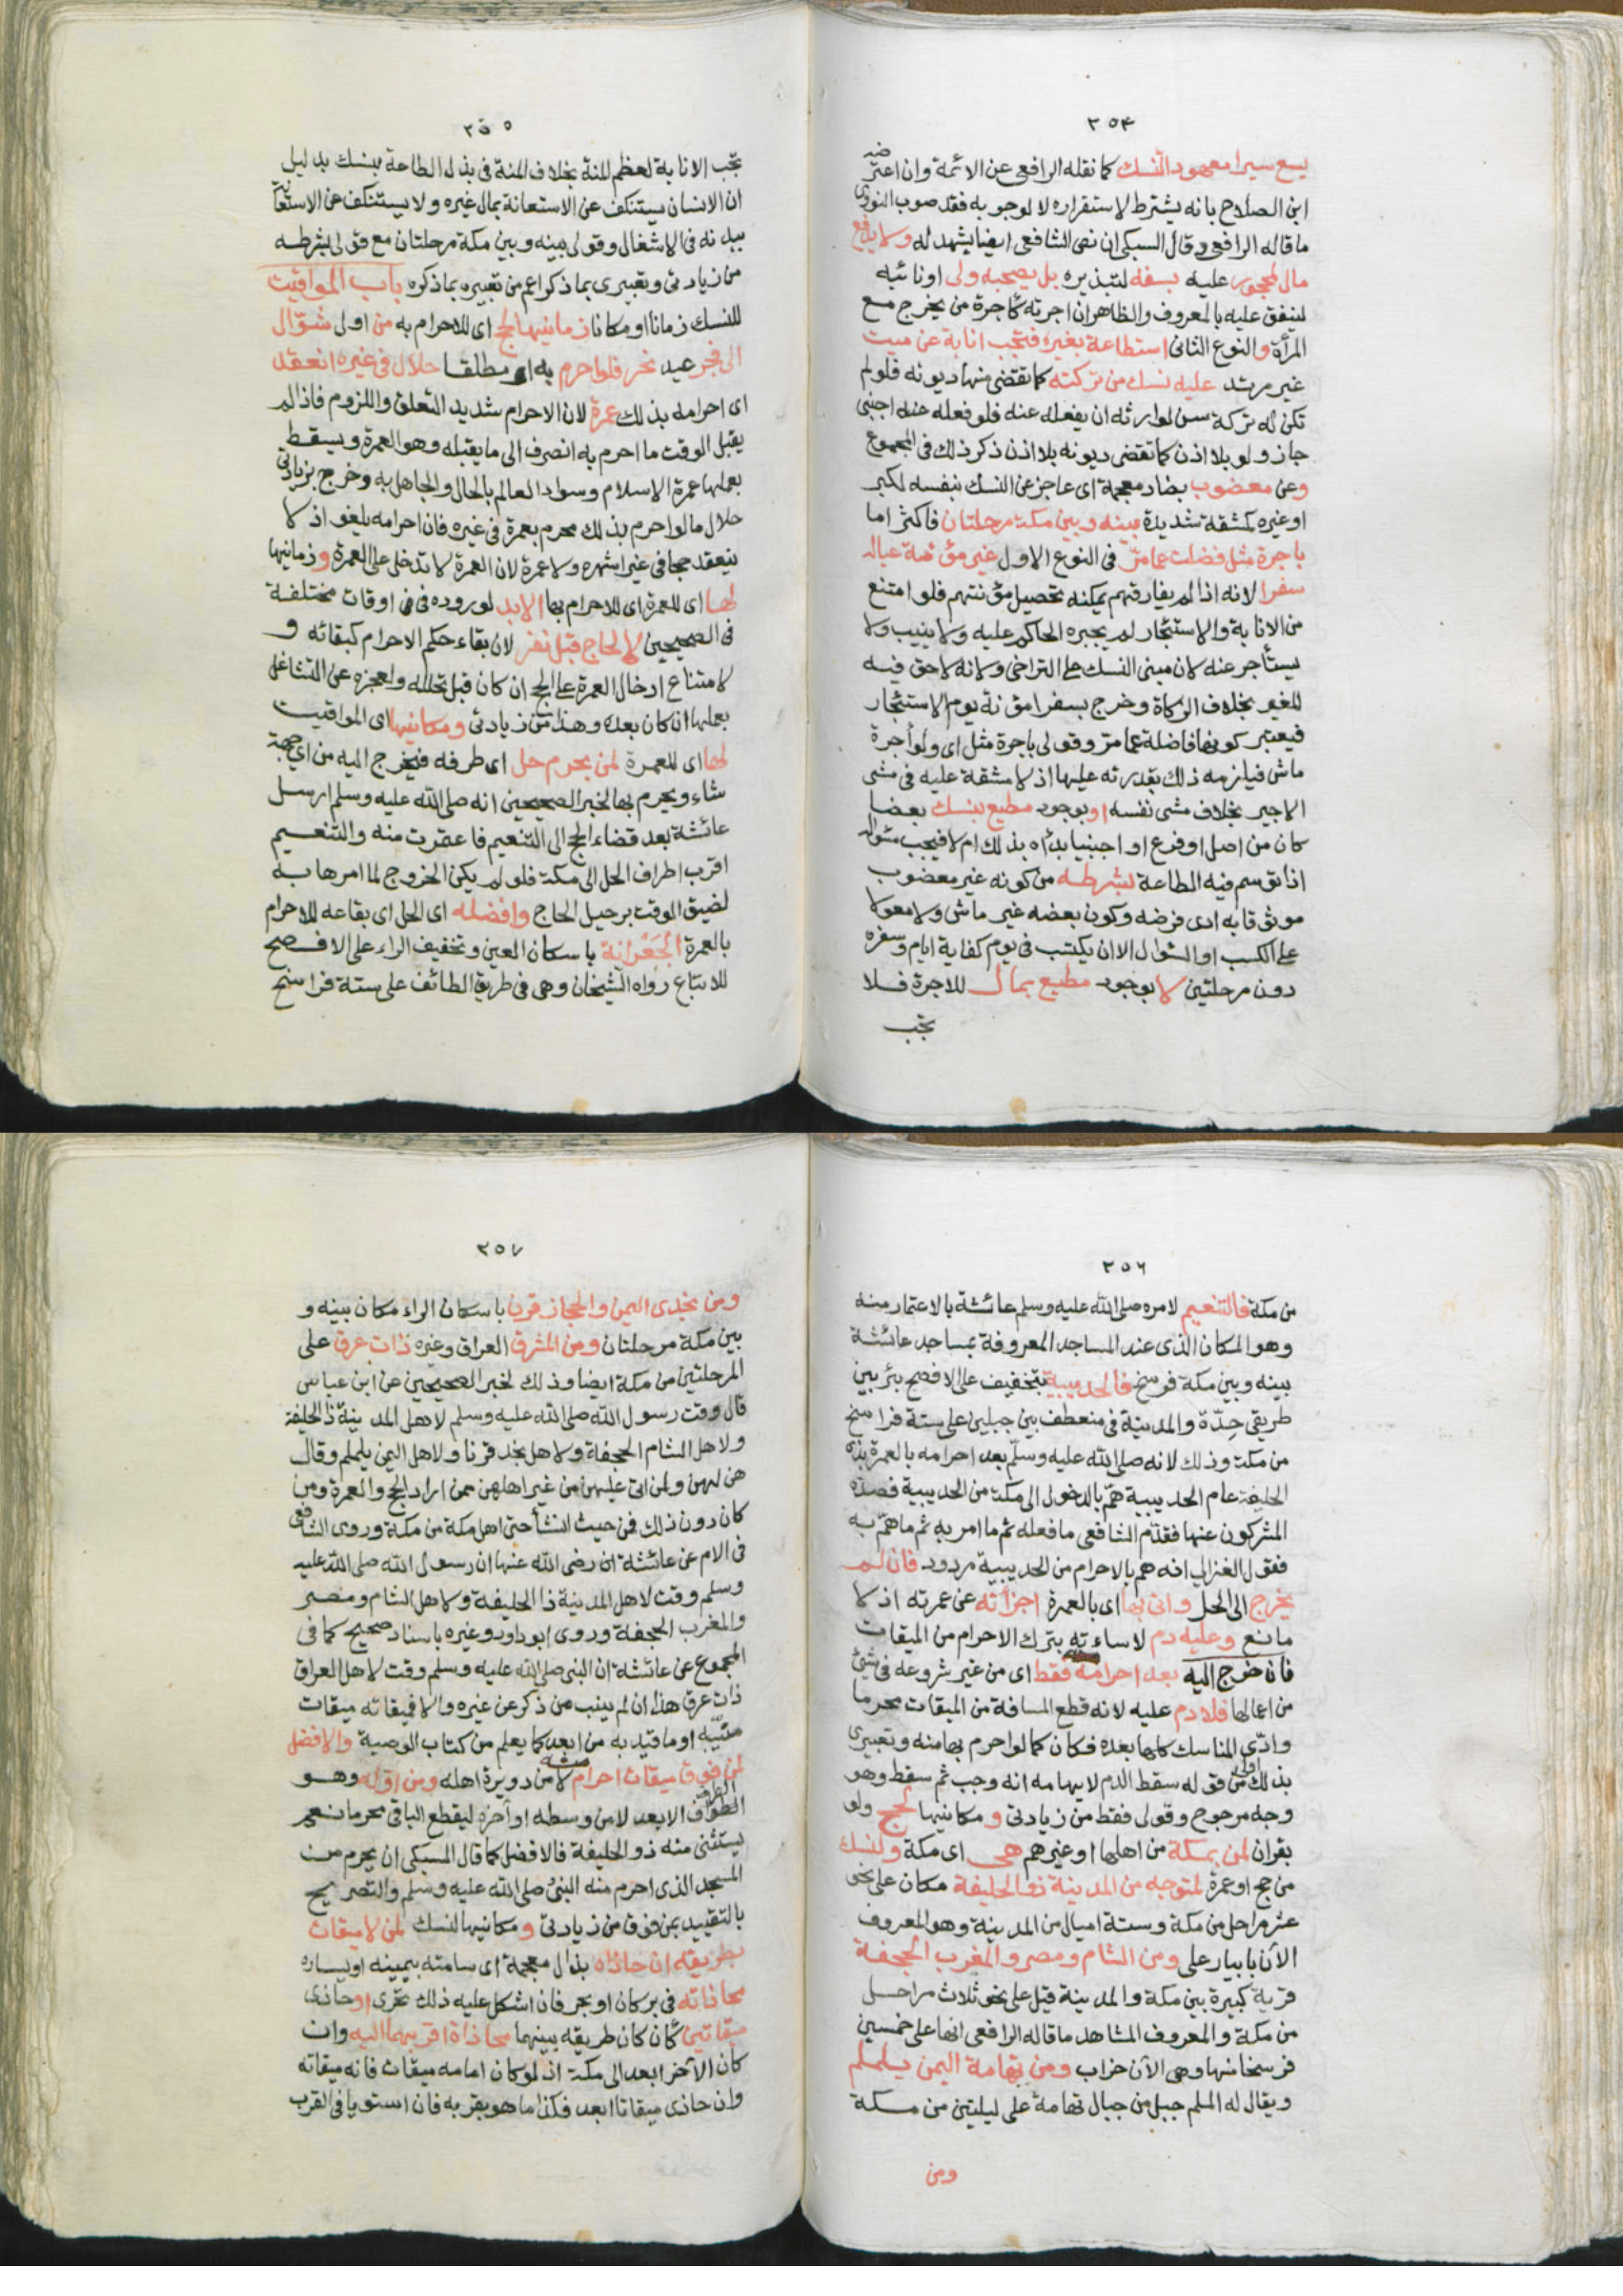 ٢٥٤
يسع سيرا معهود النسك كما نقله الرافعي عن الائمة وان اعترضه
ابن الصلاح بانه يشترط لاستقراره لا لوجوبه فقد صوب النووي
ما قاله الرافعي وقال السبكي ان نص الشافعي ايضا يشهد له ولا يدفع
مال لمحجور عليه بسفه لتبذيره بل يصحبه ولي او نائبه
لينفق عليه بالمعروف والظاهر ان اجرته كاجرة من يخرج مع
المرأة والنوع الثاني استطاعة بغيره فتجب انابة عن ميت
غير مرتد عليه نسك من تركته كما تقضى منها ديونه فلو لم
تكن له تركة سن لوارثه ان يفعله عنه فلو فعله عنه اجنبي
جاز ولو بلا اذن كما تقضى ديونه بلا اذن ذكر ذلك في المجموع
وعن معضوب بضاد معجمة اى عاجز عن النسك بنفسه لكبر
او غيره كمشقة شديدة بينه وبين مكة مرحلتان فاكثر اما
باجرة مثل فضلت عما مر في النوع الاول غير مؤنة عياله
سفرا لانه اذا لم يفارقهم يمكنه تحصيل مؤنتهم فلو امتنع
من الانابة والاستئجار لم يجبره الحاكم عليه ولا ينيب ولا
يستأجر عنه لان مبنى النسك على التراخي ولانه لا حق فيه
للغير بخلاف الزكاة وخرج بسفرا مؤنة يوم الاستئجار
فيعتبر كونها فاضلة عما مر وقولي باجرة مثل اى ولو أجرة
ماش فيلزمه ذلك بقدرته عليها اذ لا مشقة عليه في مشى
الاجير بخلاف مشى نفسه او بوجود مطيع بنسك بعضا
كان من اصل او فرع او اجنبيا بدأه بذلك ام لا فيجب سؤاله
اذا توسم فيه الطاعة بشرطه من كونه غير معضوب
موثوقا به ادى فرضه وكون بعضه غير ماش ولا معولا
على الكسب او السؤال الا ان يكتسب في يوم كفاية ايام وسفره
دون مرحلتين لا بوجود مطيع بمال للاجرة فلا
تجب
٢٥٥
تجب الانابة لعظم المنة بخلاف المنة في بذل الطاعة بنسك بدليل
ان الانسان يستنكف عن الاستعانة بمال غيره ولا يستنكف عن الاستعانة
ببدنه في الاشغال وقولي بينه وبين مكة مرحلتان مع قولي بشرطه
من زيادتي وتعبيري بما ذكر اعم من تعبيره بما ذكره باب المواقيت
للنسك زمانا ومكانا زمانيها لحج اى للاحرام به من اول شوال
الى فجر عيد نحر فلو احرم به او مطلقا حلال في غيره انعقد
اى احرامه بذلك عمرة لان الاحرام شديد التعلق واللزوم فاذا لم
يقبل الوقت ما احرم به انصرف الى ما يقبله وهو العمرة ويسقط
بعملها عمرة الاسلام وسواء العالم بالحال والجاهل به وخرج بزيادتي
حلال ما لو احرم بذلك محرم بعمرة في غيره فان احرامه يلغو اذ لا
ينعقد حجا في غير اشهره ولا عمرة لان العمرة لا تدخل على العمرة و زمانيها
لها اى للعمرة اى للاحرام بها الابد لوروده في في اوقات مختلفة
في الصحيحين لا لحاج قبل نفر لان بقاء حكم الاحرام كبقائه و
لامتناع ادخال العمرة على الحج ان كان قبل تحلله ولعجزه عن التشاغل
بعملها ان كان بعده وهذا من زيادتي ومكانيها اى المواقيت
لها اى للعمرة لمن بحرم حل اى طرفه فيخرج اليه من اى جهة
شاء ويحرم بها لخبر الصحيحين انه صلى الله عليه وسلم ارسل
عائشة بعد قضاء الحج الى التنعيم فاعتمرت منه والتنعيم
اقرب اطراف الحل الى مكة فلو لم يكن الخروج لما امرها به
لضيق الوقت برحيل الحاج وافضله اى الحل اى بقاعه للاحرام
بالعمرة الجعرانة باسكان العين وتخفيف الراء على الافصح
للاتباع رواه الشيخان وهي في طريق الطائف على ستة فراسخ
٢٥٦
من مكة فالتنعيم لامره صلى الله عليه وسلم عائشة بالاعتمار منه
وهو المكان الذى عند المساجد المعروفة بمساجد عائشة
بينه وبين مكة فرسخ فالحديبية بتخفيف على الافصح بئر بين
طريقي جدّة والمدينة في منعطف بين جبلين على ستة فراسخ
من مكة وذلك لانه صلى الله عليه وسلم بعد احرامه بالعمرة بذى
الحليفة عام الحديبية همّ بالدخول الى مكة من الحديبية فصده
المشركون عنها فقدّم الشافعي ما فعله ثم ما امر به ثم ما همّ به
فقول الغزالي انه هم بالاحرام من الحديبية مردود فان لم
يخرج الى الحل واتى بها اى بالعمرة اجزأته عن عمرته اذ لا
مانع وعليه دم لاساءته بترك الاحرام من الميقات
فان خرج اليه بعد احرامه فقط اى من غير شروعه في شئ
من اعمالها فلا دم عليه لانه قطع المسافة من الميقات محرما
وادّى المناسك كلها بعده فكان كما لو احرم بها منه وتعبيري
بذلك اولى من قوله سقط الدم لايهامه انه وجب ثم سقط وهو
وجه مرجوح وقولي فقط من زيادتي و مكانيها لحج ولو
بقران لمن بمكة من اهلها او غيرهم هي اى مكة ولنسك
من حج او عمرة لمتوجه من المدينة ذو الحليفة مكان على نحو
عشر مراحل من مكة وستة اميال من المدينة وهو المعروف
الآن بابيار على ومن الشام ومصر والمغرب الجحفة
قرية كبيرة بين مكة والمدينة قيل على نحو ثلاث مراحل
من مكة والمعروف المشاهد ما قاله الرافعي انها على خمسين
فرسخا منها وهي الآن خراب ومن تهامة اليمن يلملم
ويقال له الملم جبل من جبال تهامة على ليلتين من مكة
ومن
٢٥٧
ومن نجدى اليمن والحجاز قرن باسكان الراء مكان بينه و
بين مكة مرحلتان ومن المشرق العراق وغيره ذات عرق على
المرحلتين من مكة ايضا وذلك لخبر الصحيحين عن ابن عباس
قال وقت رسول الله صلى الله عليه وسلم لاهل المدينة ذا الحليفة
ولاهل الشام الجحفة ولاهل نجد قرنا ولاهل اليمن يلملم وقال
هن لهن ولمن اتى عليهن من غير اهلهن ممن اراد الحج والعمرة ومن
كان دون ذلك فمن حيث انشأ حتى اهل مكة من مكة وروى الشافعي
في الام عن عائشة ان رضى الله عنها ان رسول الله صلى الله عليه
وسلم وقت لاهل المدينة ذا الحليفة ولاهل الشام ومصر
والمغرب الجحفة وروى ابو داود وغيره باسناد صحيح كما في
المجموع عن عائشة ان النبي صلى الله عليه وسلم وقت لاهل العراق
ذات عرق هذا ان لم ينب من ذكر عن غيره والا فميقاته ميقات
منيبه او ما قيد به من ابعد كما يعلم من كتاب الوصية والافضل
لمن فوق ميقات احرام منه لا من دويرة اهله ومن اوله وهو
الطرف الابعد لا من وسطه او آخره ليقطع الباقي محرما نعم
يستثنى منه ذو الحليفة فالافضل كما قال السبكي ان يحرم من
المسجد الذى احرم منه النبي صلى الله عليه وسلم والتصريح
بالتقييد بمن فوق من زيادتي و مكانيها لنسك لمن لا ميقات
بطريقه ان حاذاه بذال معجمة اى سامته بيمينه او يساره
محاذاته في بر كان او بحر فان اشكل عليه ذلك تحرى او حاذى
ميقاتين كان كان طريقه بينهما محاذاة اقربهما اليه وان
كان الآخر ابعد الى مكة اذ لو كان امامه ميقات فانه ميقاته
وان حاذى ميقاتا ابعد فكذا ما هو بقربه فان استويا في القرب